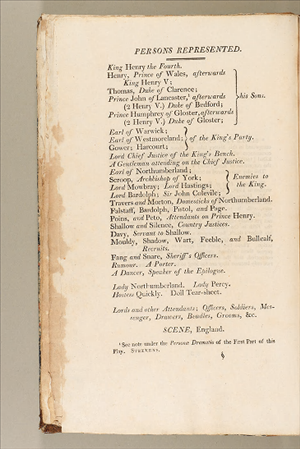 PERSONS REPRESENTED.
King Henry the Fourth.
Henry, Prince of Wales, afterwards
King Henry V;
Thomas, Duke of Clarence;
Prince John of Lancaster,¹ afterwards
(2 Henry V.) Duke of Bedford;
Prince Humphrey of Gloster, afterwards
(2 Henry V.) Duke of Gloster;
his Sons.
Earl of Warwick;
Earl of Westmoreland;
Gower; Harcourt;
of the King's Party.
Lord Chief Justice of the King's Bench.
A Gentleman attending on the Chief Justice.
Earl of Northumberland;
Scroop, Archbishop of York;
Lord Mowbray; Lord Hastings;
Lord Bardolph; Sir John Colevile;
Enemies to
the King.
Travers and Morton, Domesticks of Northumberland.
Falstaff, Bardolph, Pistol, and Page.
Poins, and Peto, Attendants on Prince Henry.
Shallow and Silence, Country Justices.
Davy, Servant to Shallow.
Mouldy, Shadow, Wart, Feeble, and Bullcalf,
Recruits.
Fang and Snare, Sheriff's Officers.
Rumour. A Porter.
A Dancer, Speaker of the Epilogue.
Lady Northumberland. Lady Percy.
Hostess Quickly. Doll Tear-sheet.
Lords and other Attendants; Officers, Soldiers, Mes-
senger, Drawers, Beadles, Grooms, &c.
SCENE, England.
¹ See note under the Personæ Dramatis of the First Part of this
Play. STEEVENS.